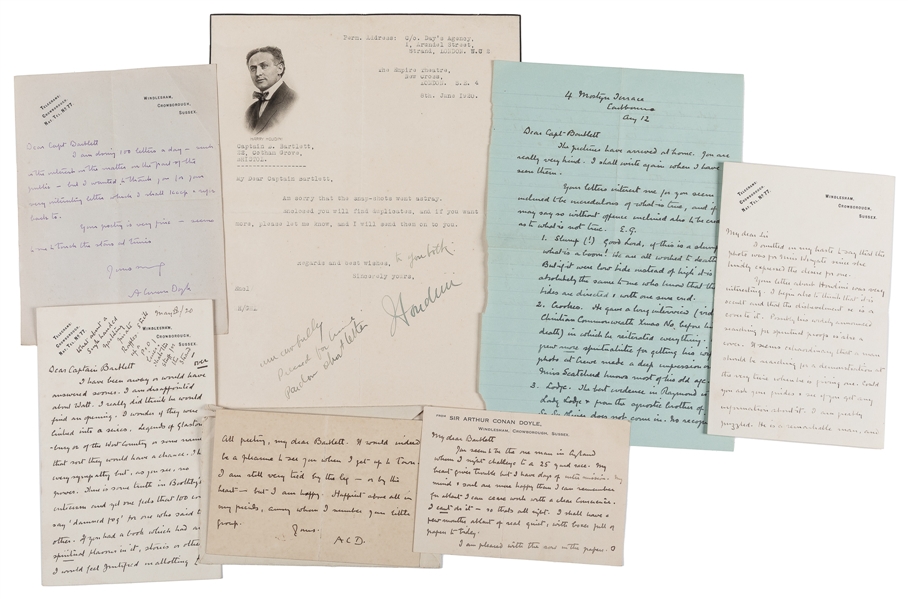 TELEGRAMS:
CROWBOROUGH.
NAT. TEL. No. 77.
WINDLESHAM,
CROWBOROUGH,
SUSSEX.
Dear Capt Bartlett
I am doing 100 letters a day - such
is the interest in the matter on the part of the
public - but I wanted to thank you for your
very interesting letter which I shall keep & refer
back to.
Your poetry is very fine - seems
to me to touch the stars at times
Yours
A Conan Doyle
Perm. Address: C/o. Day's Agency,
Arundel Street,
Strand, LONDON. W.C 2
The Empire Theatre,
New Cross,
LONDON. S.E. 4
8th. June 1920.
HARRY HOUDINI
Captain Bartlett,
Cotham Grove,
BRISTOL.
My Dear Captain Bartlett,
Am sorry that the snap-shots went astray.
Enclosed you will find duplicates, and if you want
more, please let me know, and I will send them on to you.
Regards and best wishes, to you both
Sincerely yours,
Houdini
pardon short letter
4 Mostyn Terrace
Eastbourne
Aug 12
Dear Capt Bartlett
The pictures have arrived at home. You are
really very kind. I shall write again when I have
seen them.
Your letters interest me for you seem
inclined to be incredulous of what is true, and if
may say so without offence inclined also to be cred
as to what is not true. E.G.
1. Slump (!) Good Lord, if this is a slump
what is a boom! We are all worked to death
But if it were low tide instead of high it is
absolutely the same to me who know that the
tides are directed & with one sure end.
2. Crookes. He gave a long interview
Christian Commonwealth Xmas No, before his
death) in which he reiterated everything.
grew more spiritualistic for getting his wife's
photo at Crewe made a deep impression on
Miss Scatcherd knows most of his old age
3. Lodge. The best evidence in Raymond is
Lady Lodge & from the agnostic brother of
Sir Oliver does not come in.
TELEGRAMS:
CROWBOROUGH.
NAT. TEL. No. 77.
WINDLESHAM,
CROWBOROUGH,
SUSSEX.
My dear Sir
I omitted in my haste to say that the
photo was for Miss Wingate since she
kindly expressed the desire for one.
Your letter about Houdini was very
interesting. I hope also to think that it is
occult and that the advertisement is as a
searching for spiritual proofs is also a
cover. It seems extraordinary that a man
should be searching for a demonstration at
the very time when he is giving one. Could
you ask your guides & see if you get any
information about it? I am greatly
puzzled. He is a remarkable man, and
TELEGRAMS:
CROWBOROUGH.
NAT. TEL. No. 77.
WINDLESHAM,
CROWBOROUGH,
SUSSEX.
May 6/20
What about a
over
Dear Captain Bartlett
I have been away or would have
answered sooner. I am disappointed
about Watt. I really did think he would
find an opening. I wonder if they were
linked into a series. Legends of Glaston
-bury or of the West Country or some name
that sort they would have a chance. I have
every sympathy but, as you see, no
power. There is some truth in
criticisms and yet one feels that 100 cri
say 'damned fog' for one who said t
other. If you had a book which had a
spiritual flavour in it, stories or other
I would feel justified in allotting £
All greeting, my dear Bartlett. It would indeed
be a pleasure to see you when I get up to Town.
I am still very tied by the leg - or by the
heart - but I am happy. Happiest above all in
my friends, among whom I number your little
group.
Yours
A C D.
FROM SIR ARTHUR CONAN DOYLE,
WINDLESHAM, CROWBOROUGH, SUSSEX.
My dear Bartlett
You seem to be the one man in England
whom I might challenge to a 25 yard race. My
heart gives trouble but I have days of intermission. My
mind & soul are more happy than I can remember
for at last I can cease work with a clear Conscience.
I can't do it - so that's all right. I shall have a
few months at least of real quiet, with
papers to tidy.
I am pleased with the row in the papers. O